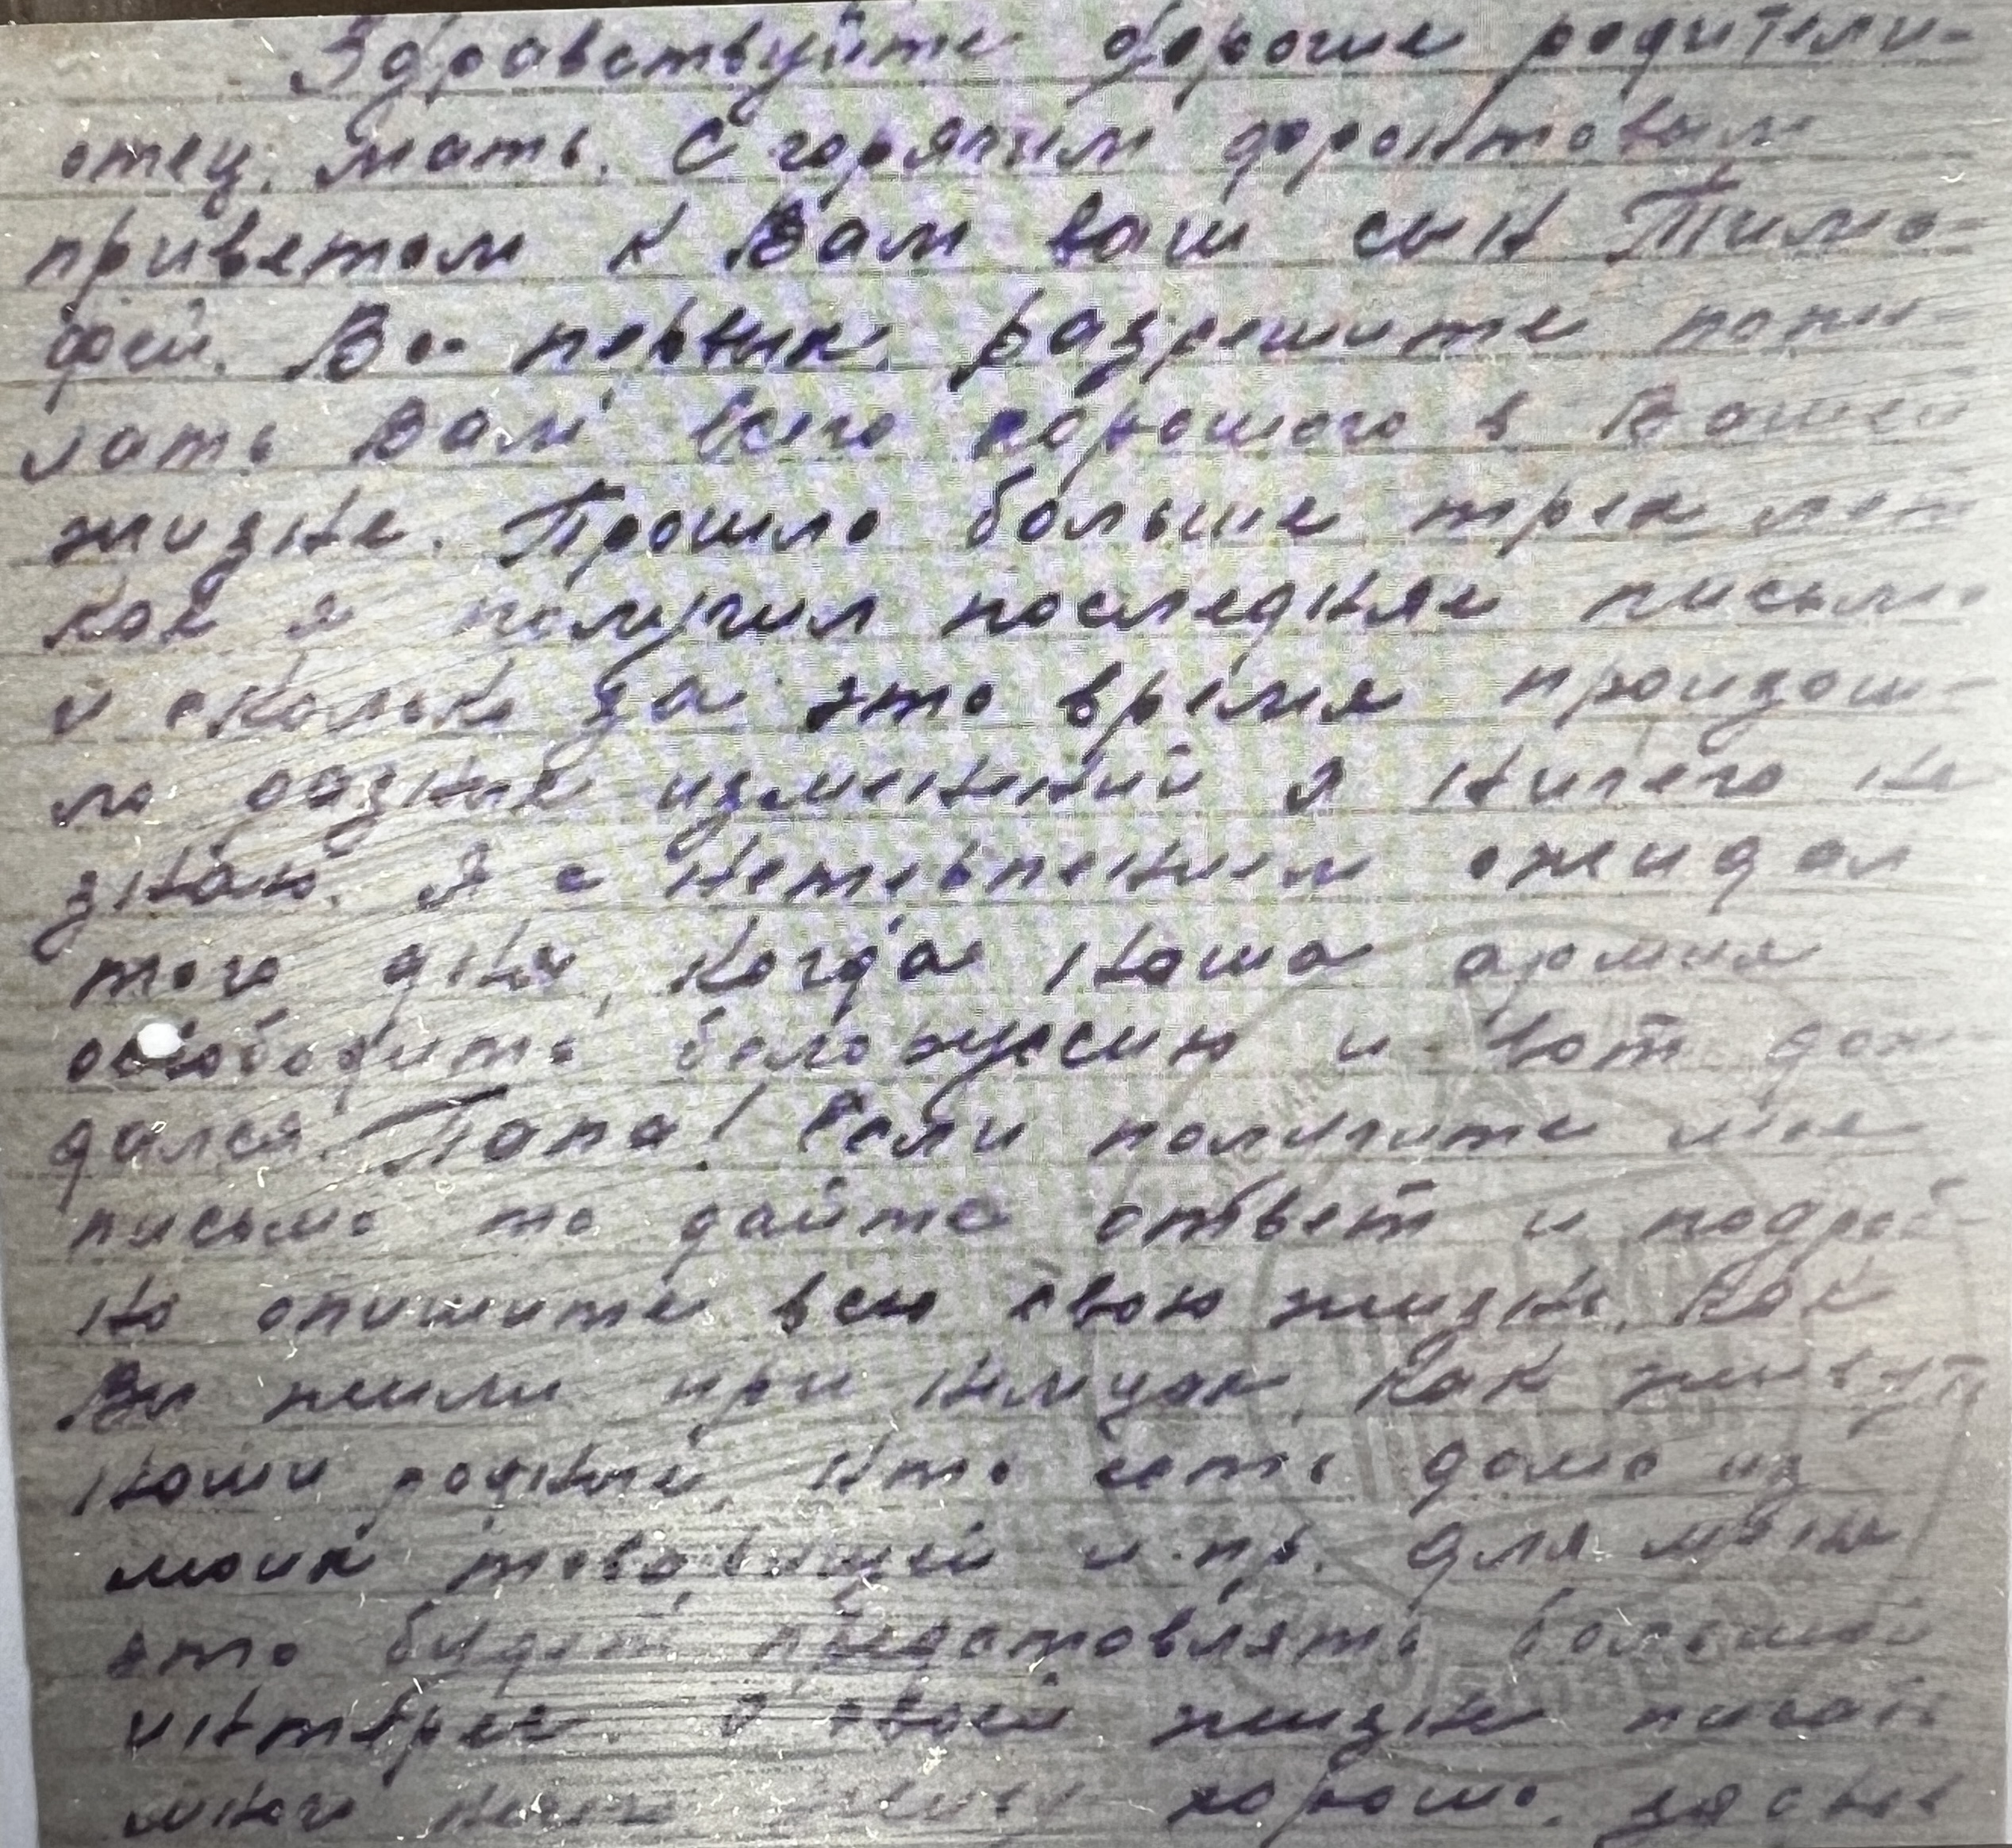 Здравствуйте дорогие родители-
отец, мать. С горячим фронтовым
приветом к Вам ваш сын Тимо-
фей. Во-первых, разрешите поже-
лать Вам всего хорошого в Вашей
жизне. Прошло больше трех лет
как я получил последняе письмо
и сколько за это время произош-
ло разных изменений я ничего не
знаю. Я с нетерпением ожидал
того дня, когда наша армия
освободить белоруссию и вот дож-
дался. Папа! Если получите мое
письмо то дайте ответ и подроб-
но опишите всю свою жизнь. Как
Вы жили при немцах, как живут
наши родные, кто есть дома из
моих товарищей и пр. Для меня
это будет представлять большой
интерес. О своей жизне писать
много нечего живу хорошо,